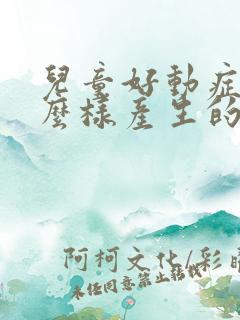 兒童好動症
麼樣產生的
阿柯文化/彩
未任同意禁止轉載